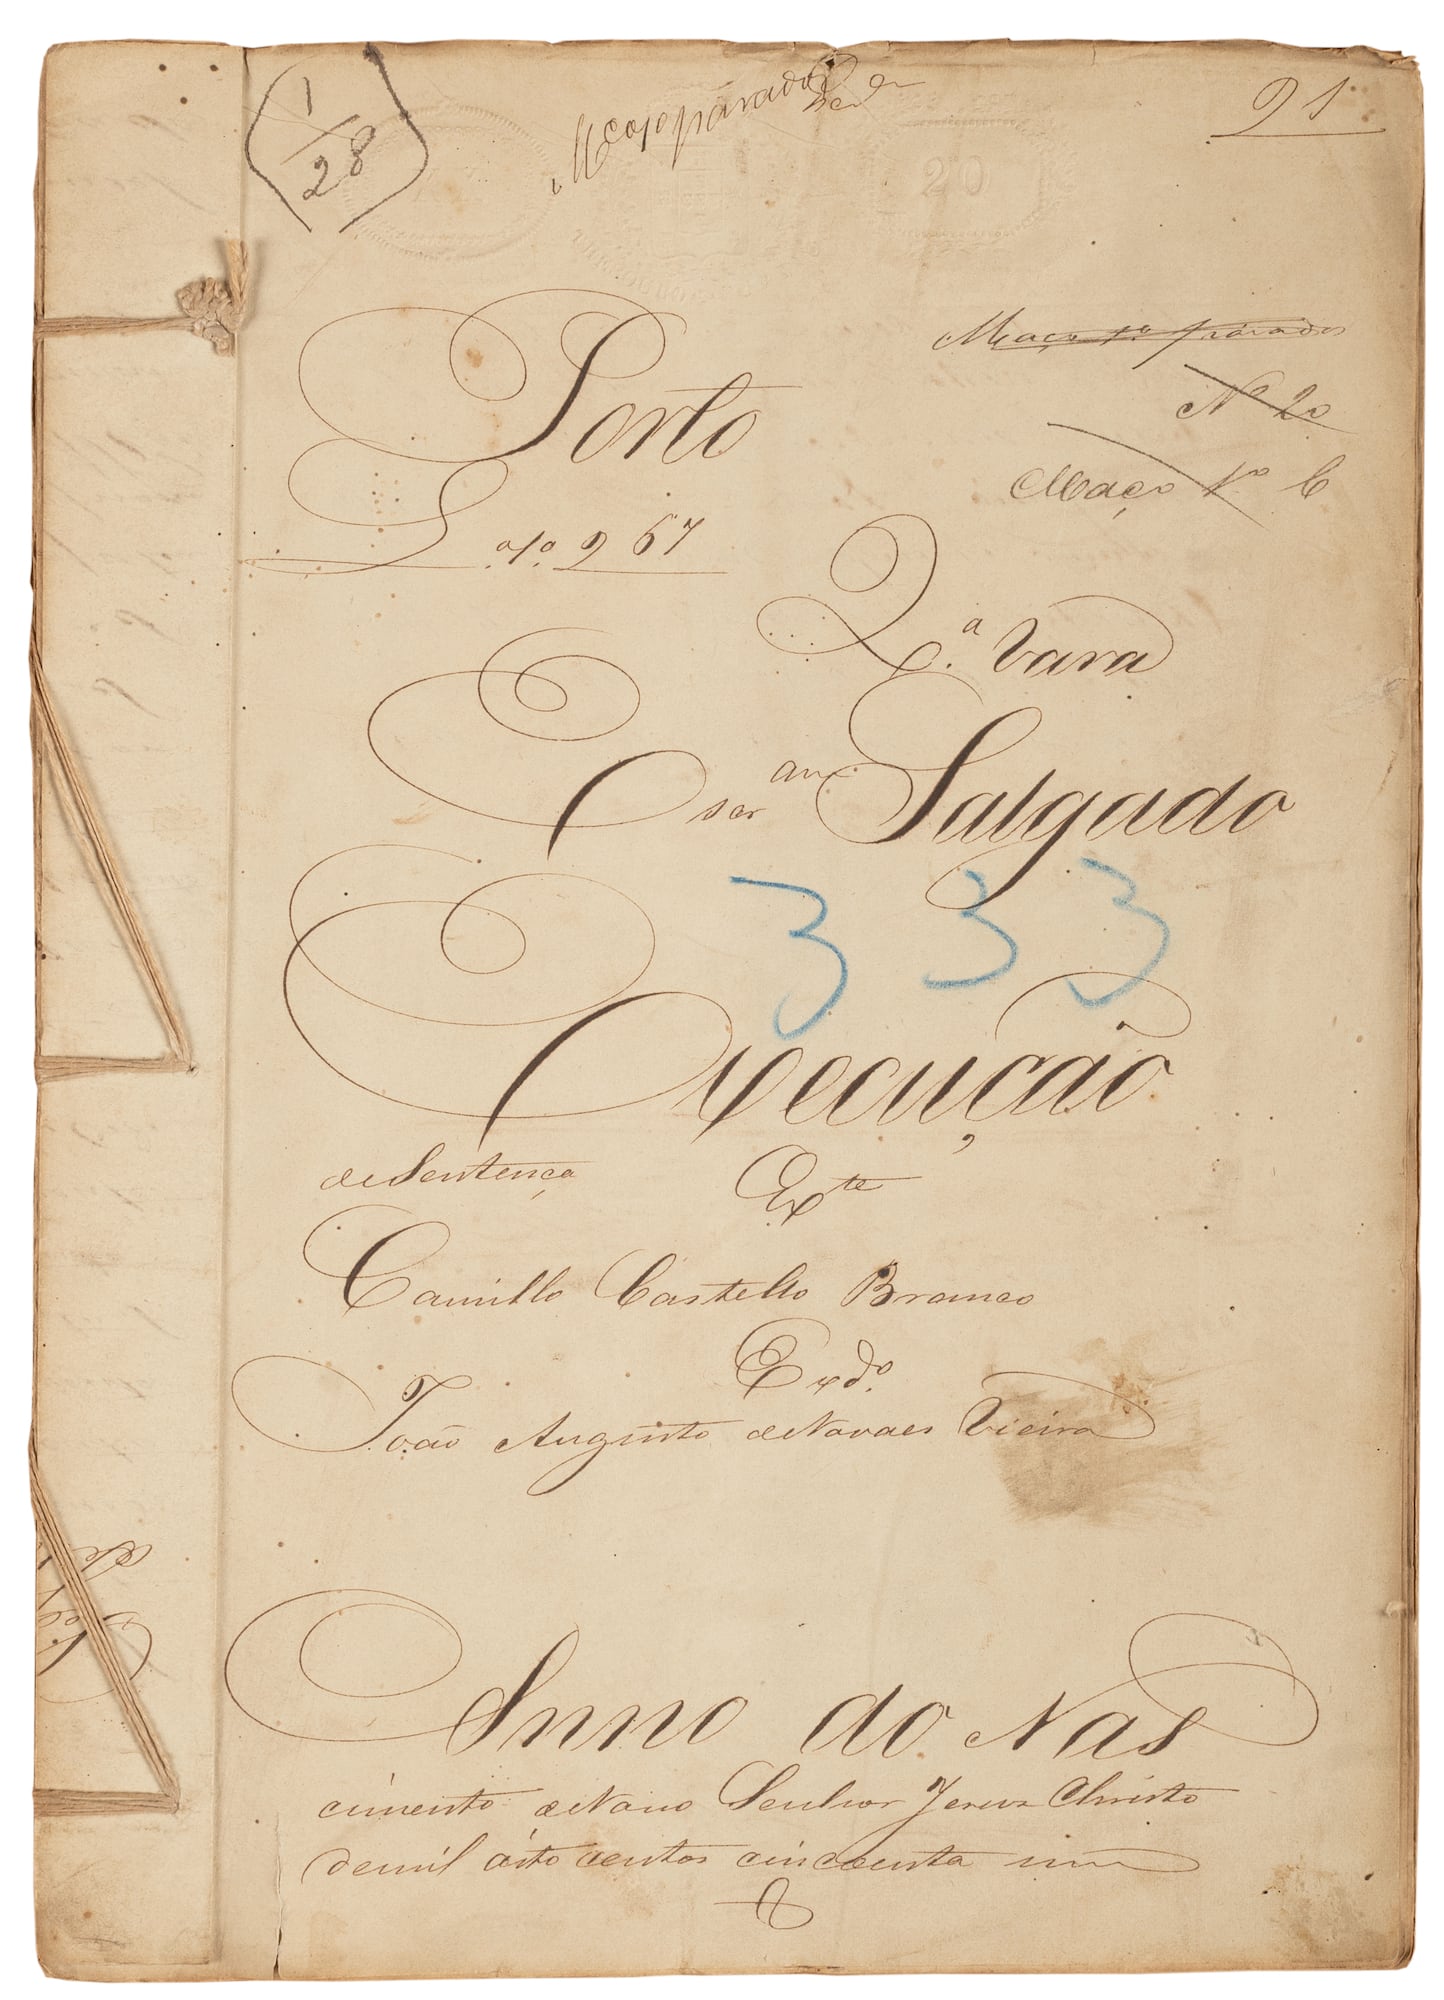 1/28
21
20
Maço 1º
Nº 20
Maço 1º 6
Porto
Nº 267
2.ª Vara
Escr.am Salgado
333
Execução
de Sentença
Exte
Camillo Castello Branco
Exdº.
João Augusto de Novaes Vieira
Anno do Nas
cimento de Nosso Senhor Jesus Christo
de mil oito centos cincoenta um